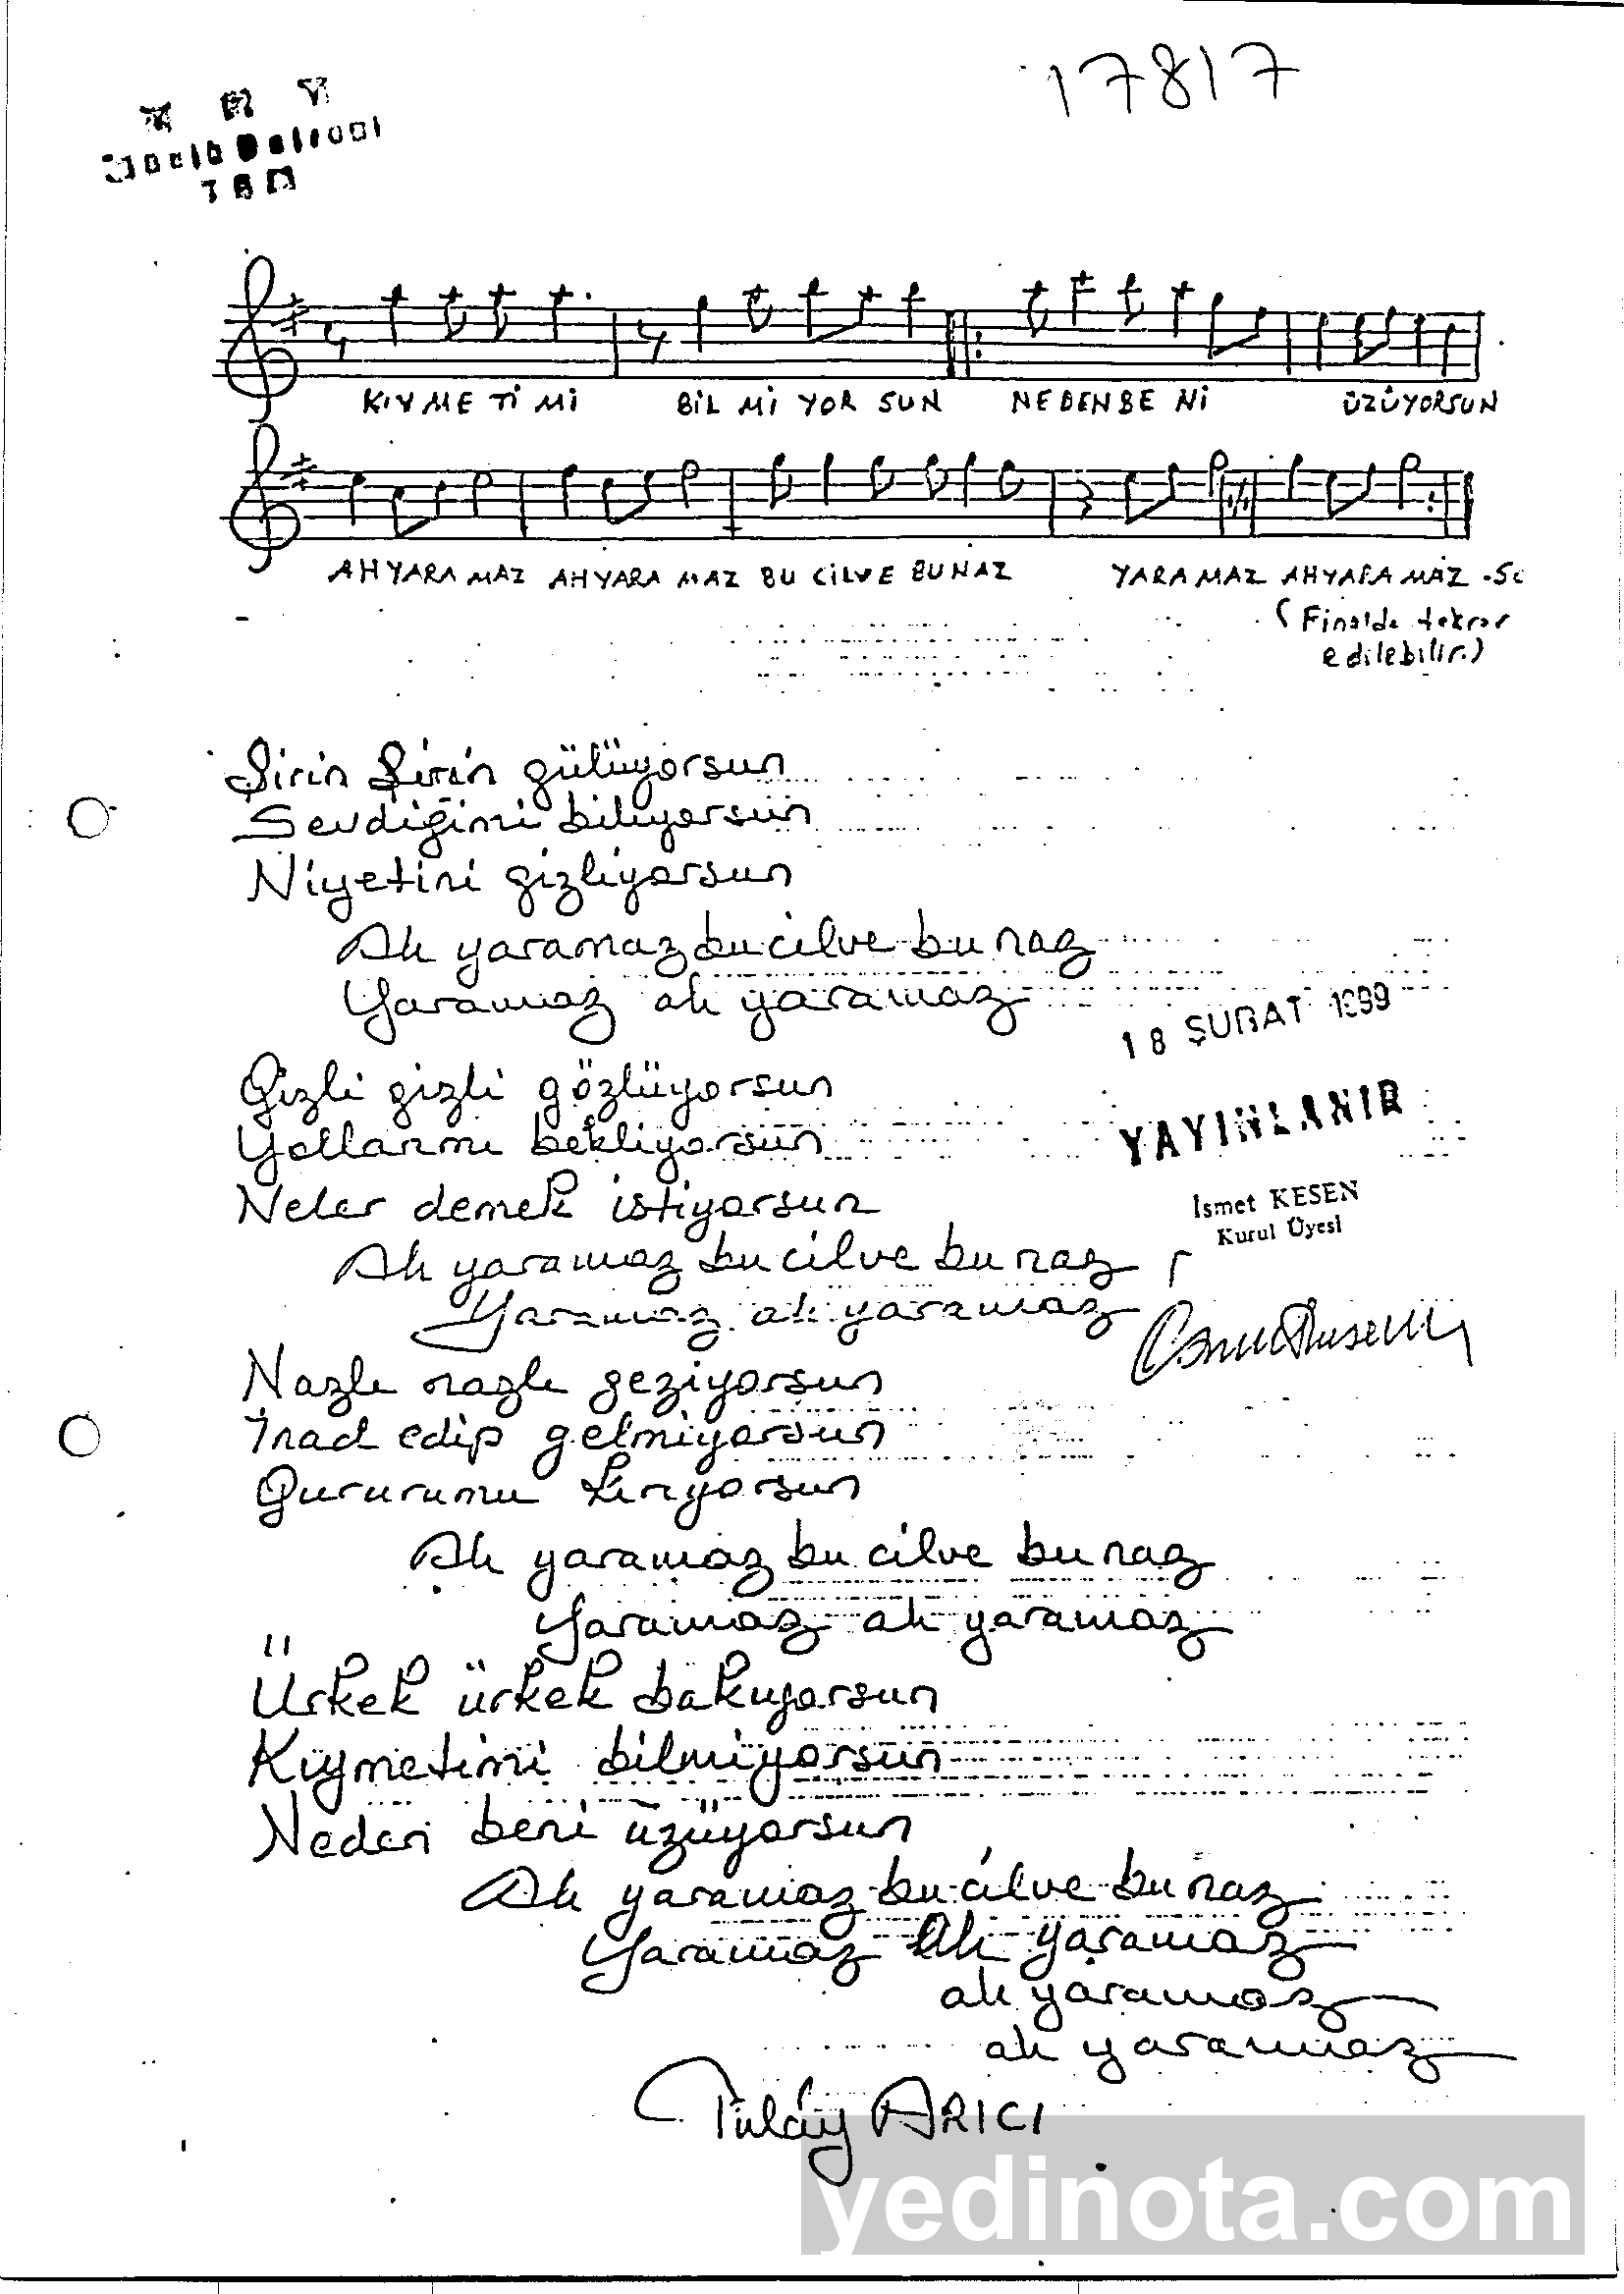 17817
KIYMETİMİ BİLMİYORSUN NEDENBENİ ÜZÜYORSUN
AHYARAMAZ AHYARAMAZ BU CİLVE BUNAZ YARAMAZ AHYARAMAZ
(Finalde tekrar
edilebilir.)
Şirin Şirin gülüyorsun
Sevdiğimi biliyorsun
Niyetini gizliyorsun
Ah yaramaz bu cilve bu naz
Yaramaz ah yaramaz
18 ŞUBAT 1999
Gizli gizli gözlüyorsun
YAYINLANIR
Yollarımı bekliyorsun
Neler demek istiyorsun
İsmet KESEN
Kurul Üyesi
Ah yaramaz bu cilve bu naz
Yaramaz ah yaramaz
Nazlı nazlı geziyorsun
İnad edip gelmiyorsun
Gururumu kırıyorsun
Ah yaramaz bu cilve bu naz
Yaramaz ah yaramaz
Ürkek ürkek bakıyorsun
Kıymetimi bilmiyorsun
Neden beni üzüyorsun
Ah yaramaz bu cilve bu naz
Yaramaz Ah yaramaz
ah yaramaz
ah yaramaz
Tülay ARICI
yedinota.com